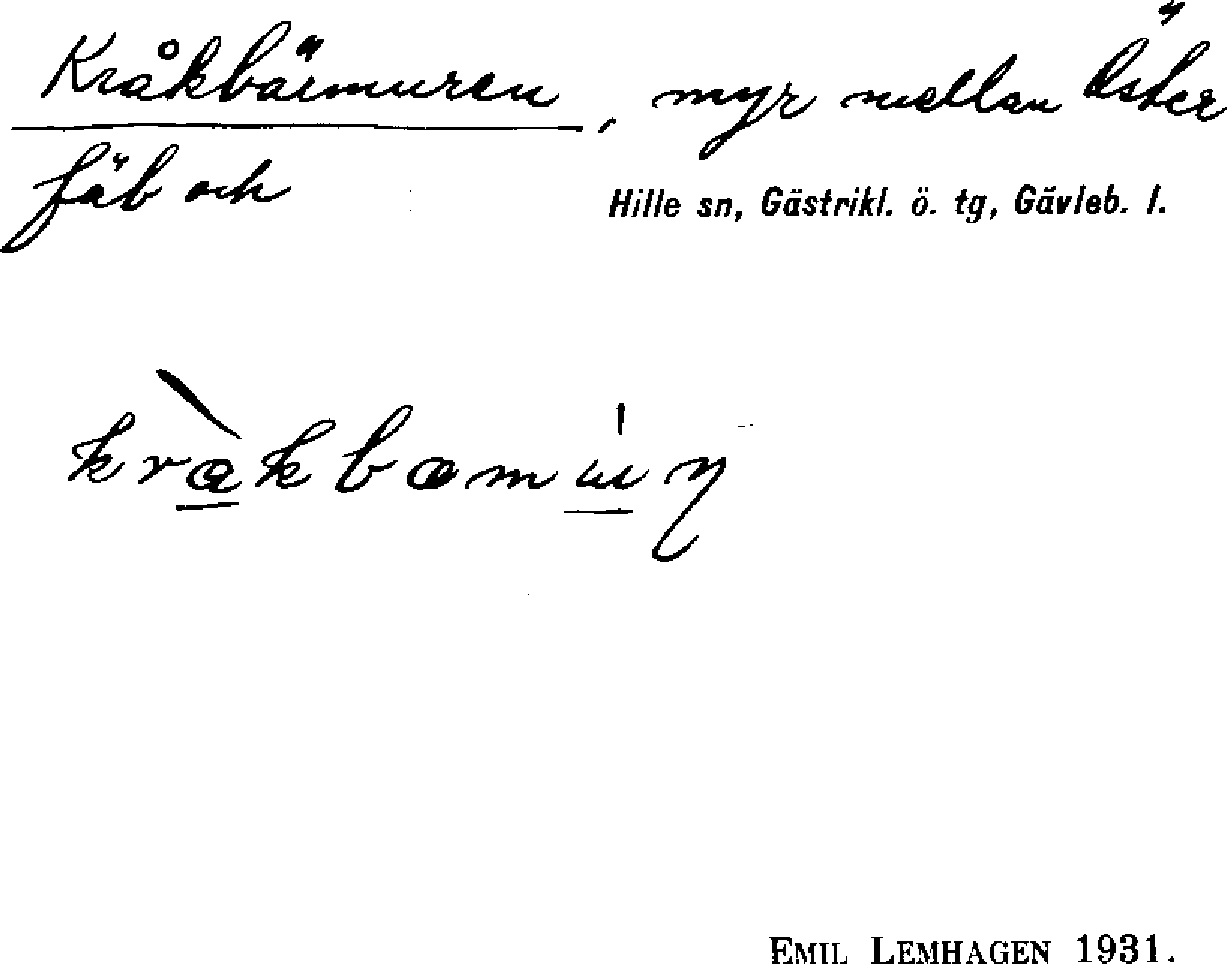 Kråkbärmuren, myr mellan Öster
fäb och
Hille sn, Gästrikl. ö. tg, Gävleb. l.
EMIL LEMHAGEN 1931.